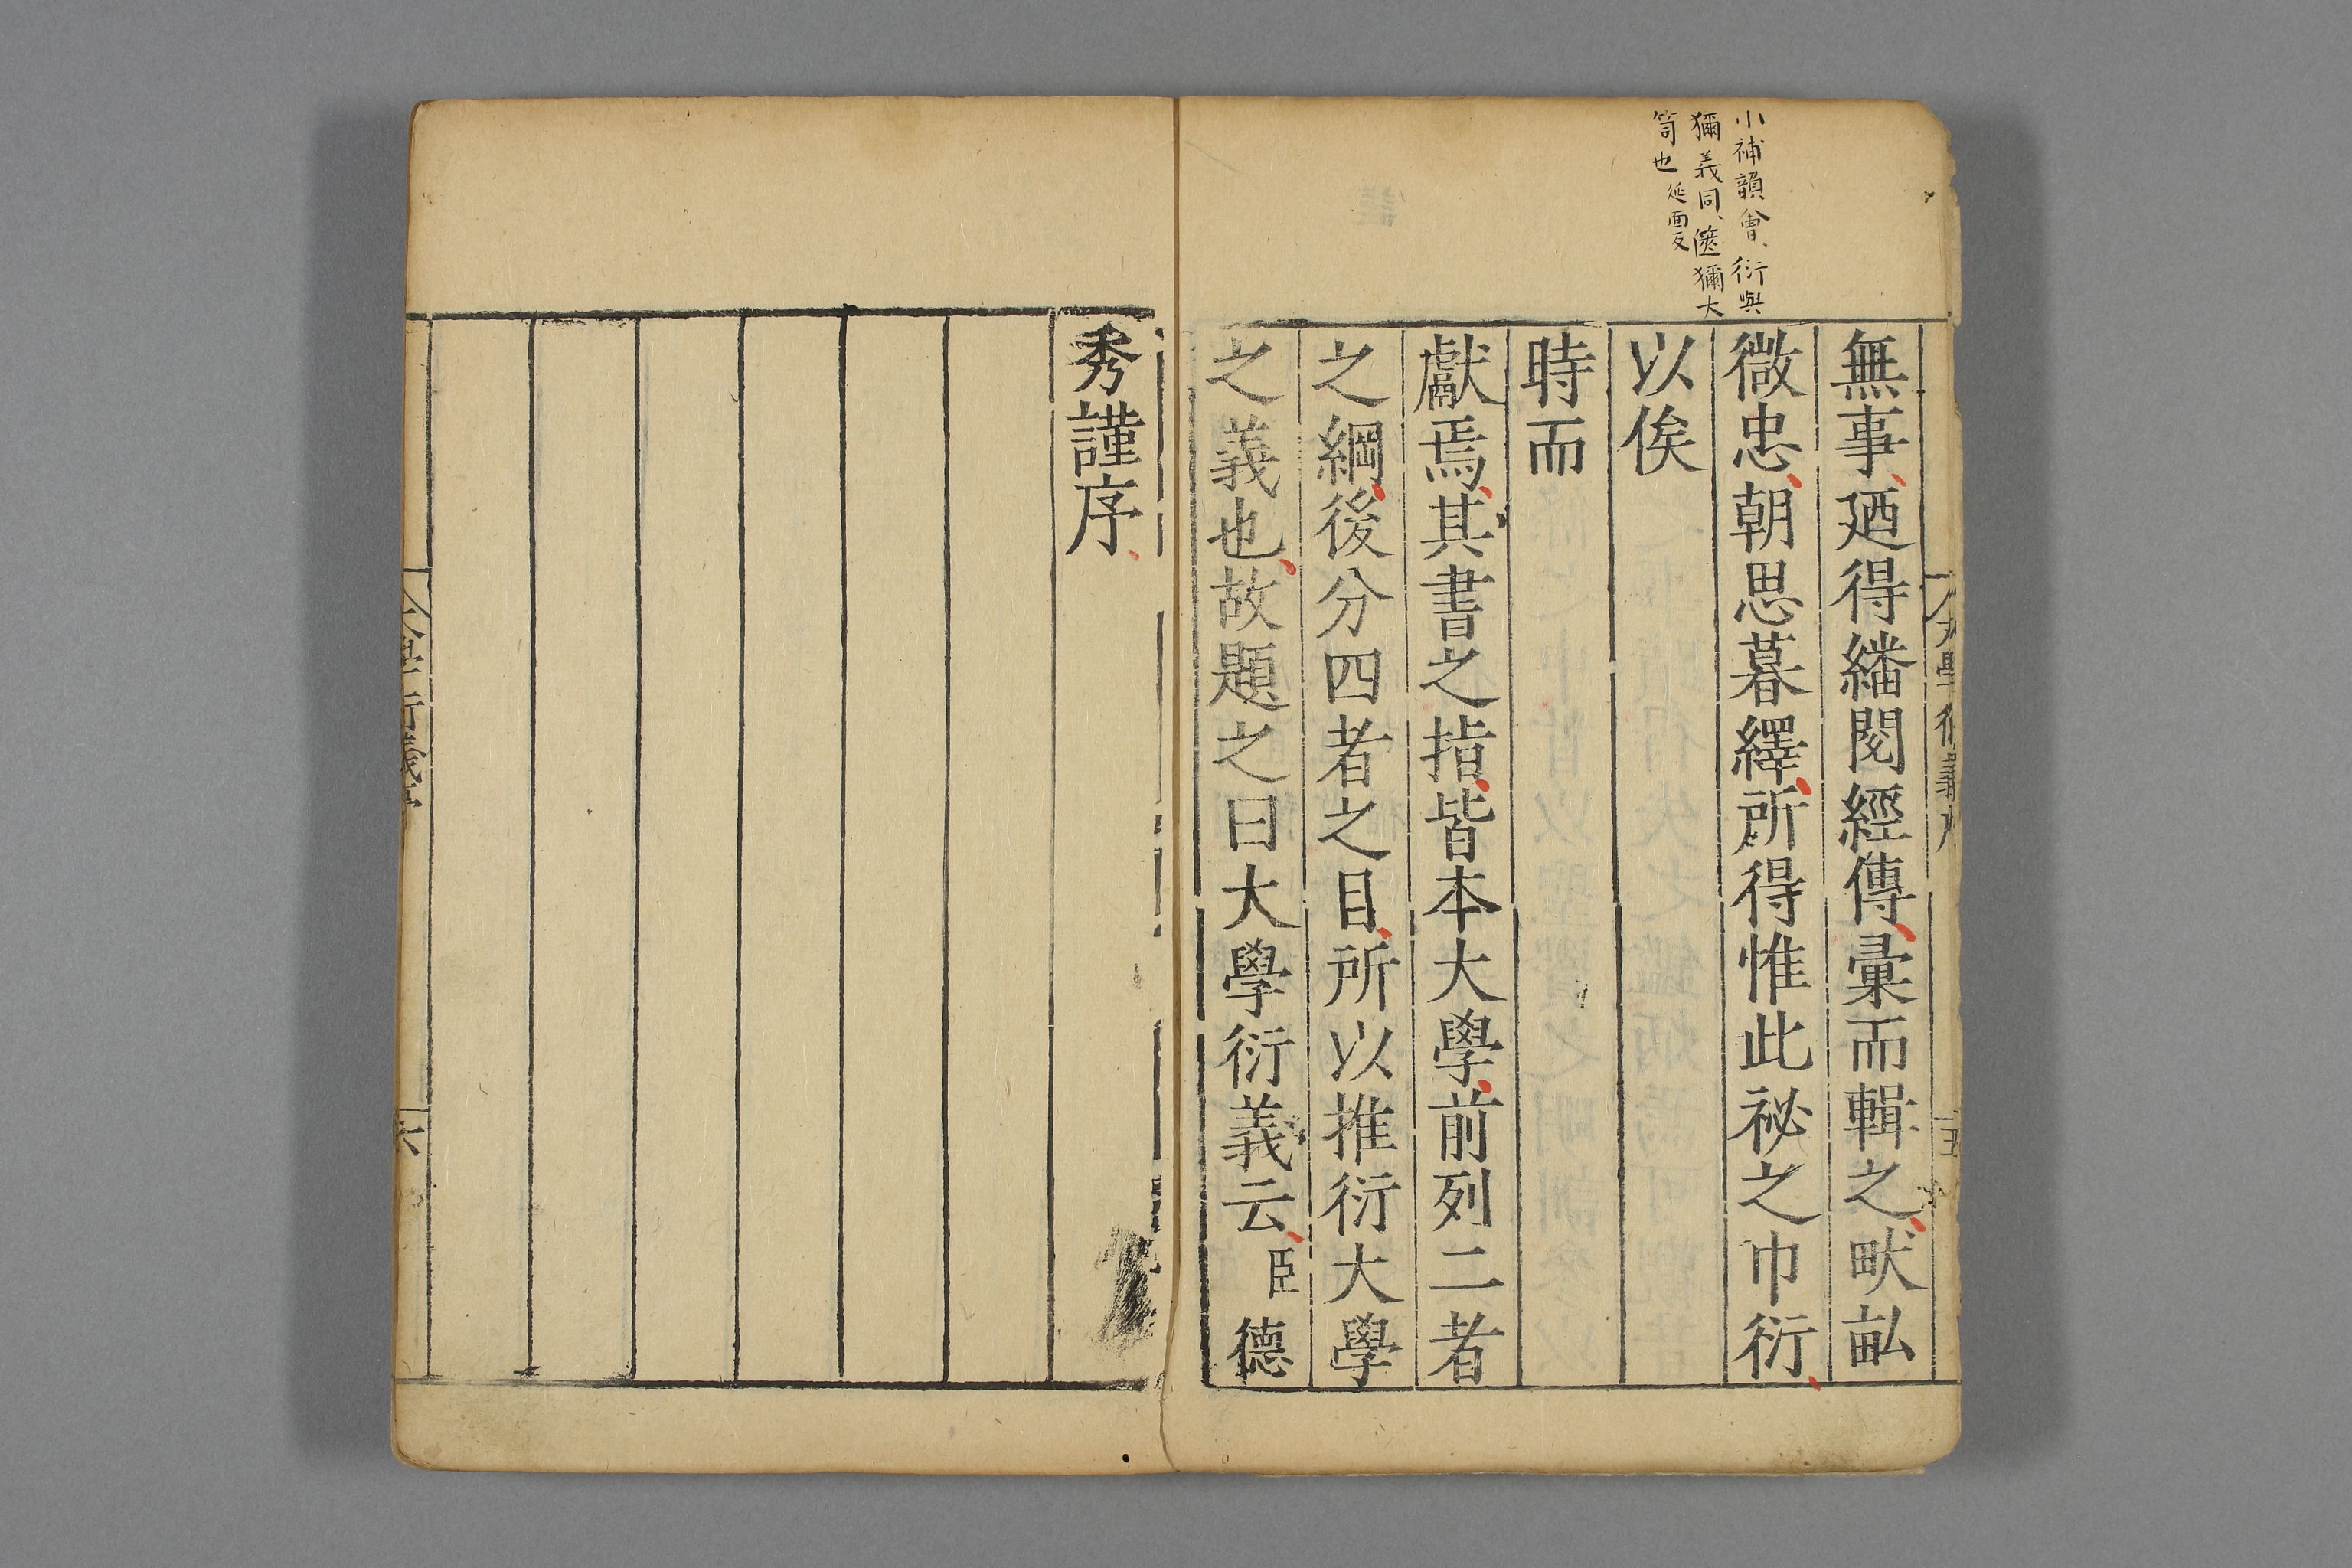 小補韻會、衍與
獮義同、篋獮大
笥也 延面反
無事、廼得繙閱經傳、彙而輯之、畎畝
微忠、朝思暮繹、所得惟此祕之巾衍、
以俟
時而
獻焉、其書之指、皆本大學、前列二者
之綱、後分四者之目、所以推衍大學
之義也、故題之曰大學衍義云、臣德
秀謹序、
大學衍義序
五
六